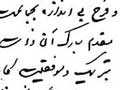 و فرح بی اندازه بجا گذاشت
مقدم بارک آن ذات
تبریک و موفقیت کا